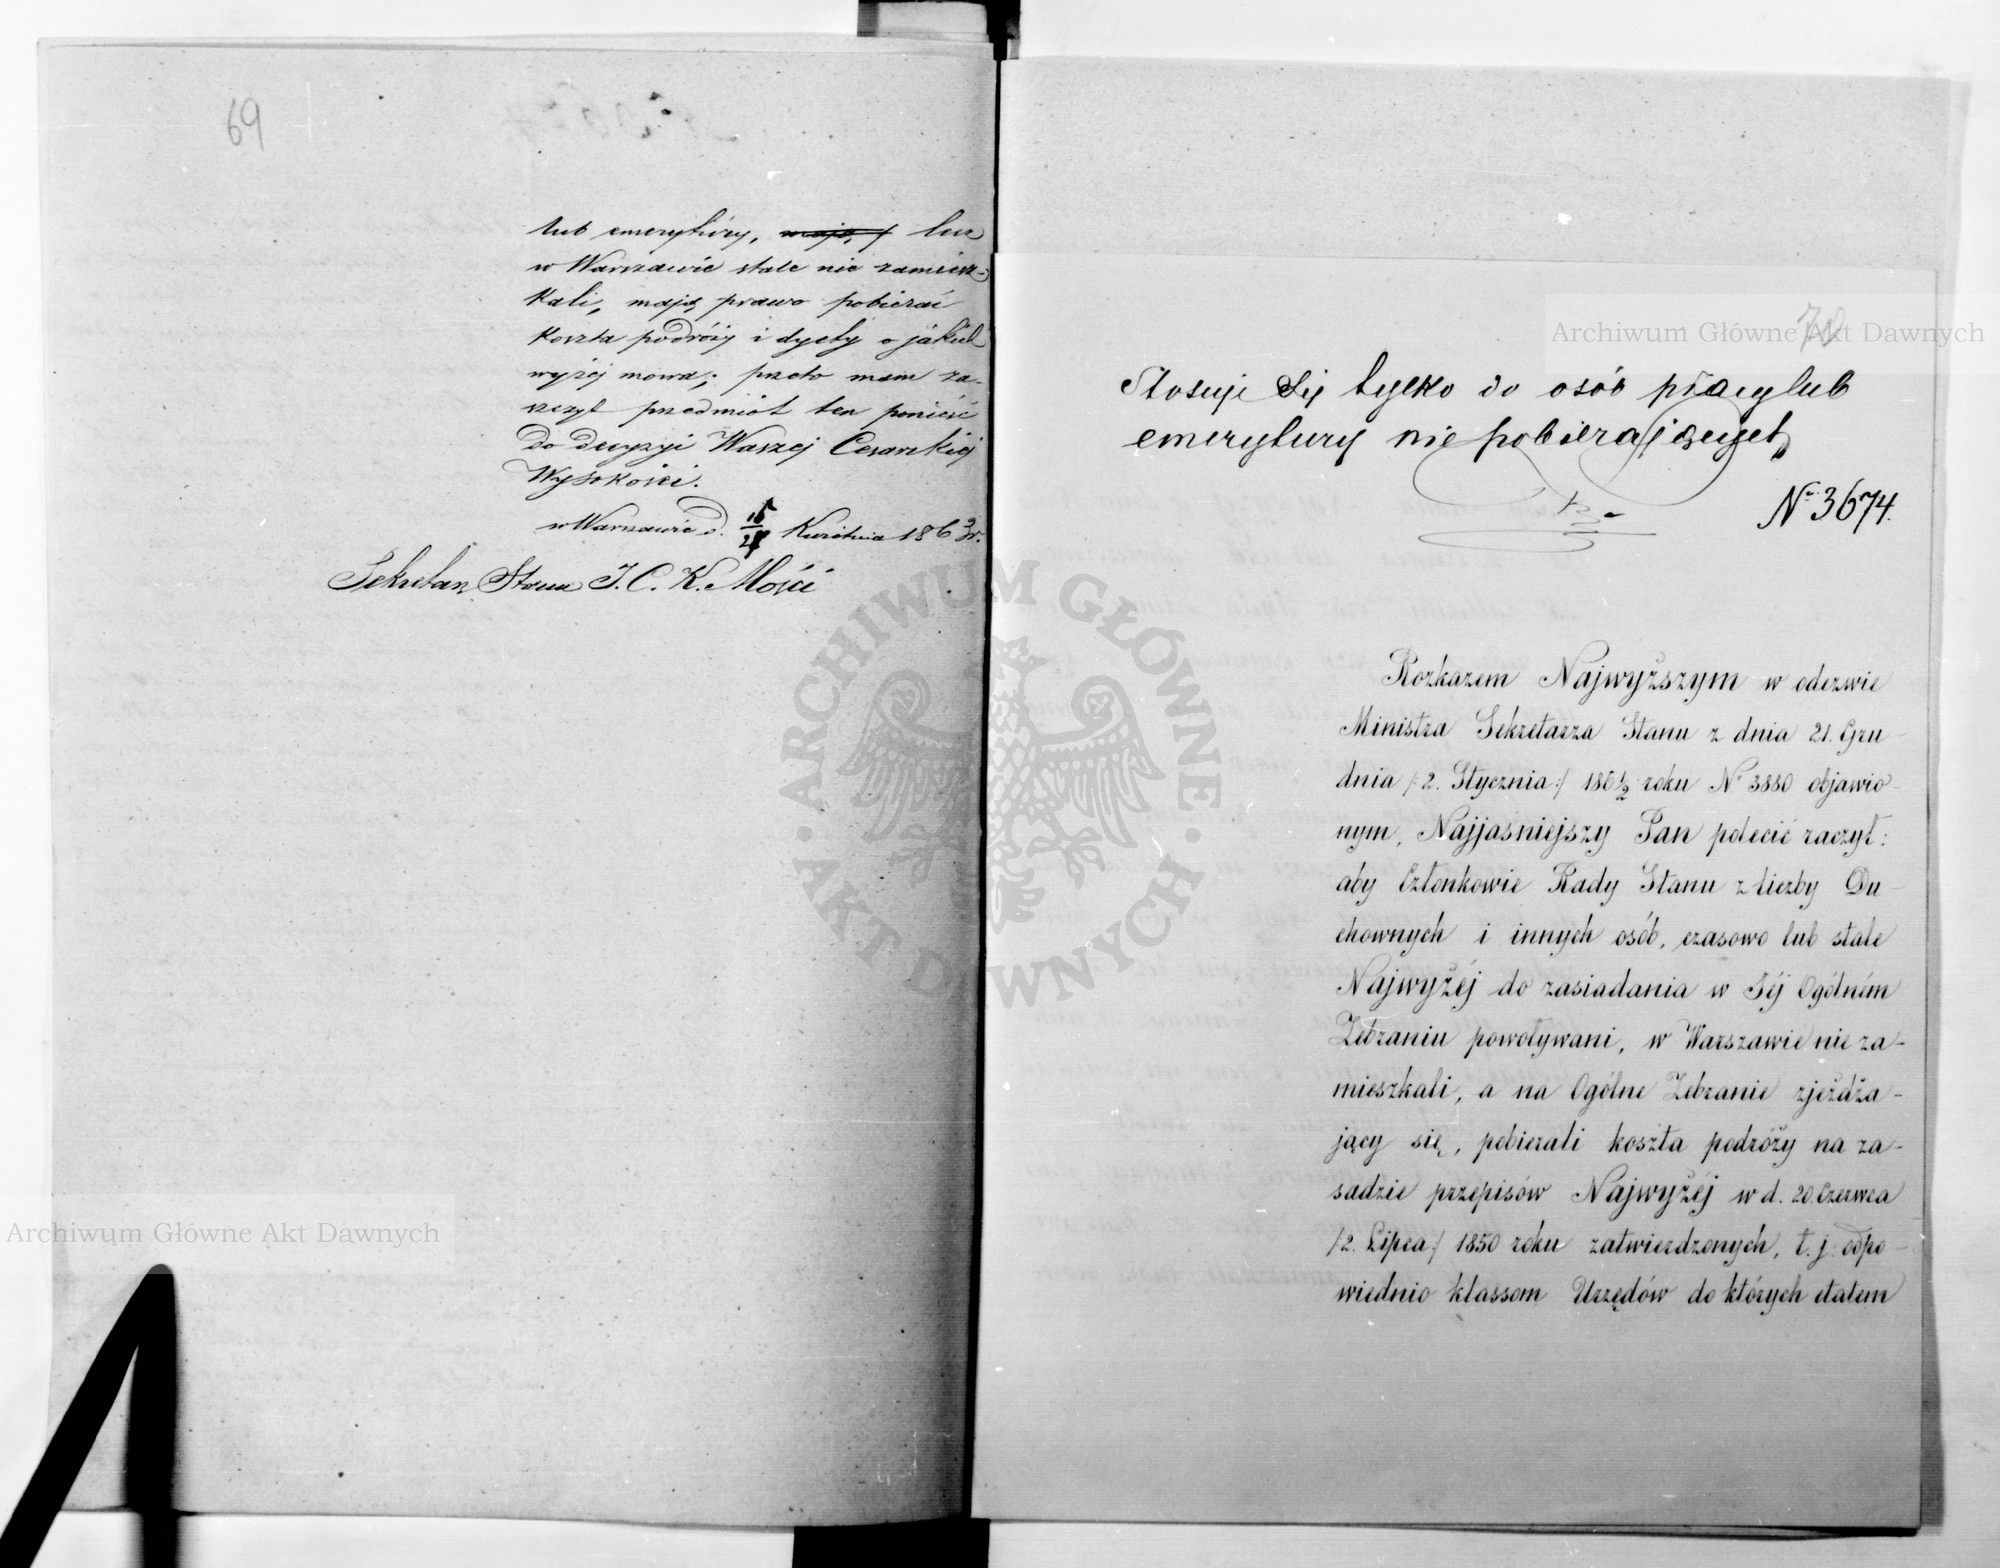 69
lub emerytury, mają lecz
w Warszawie stale nie zamiesz-
kali, mają prawo pobierać
koszta podróży i dyety o jakich
wyżej mowa; przeto mam za-
szczyt przedmiot ten ponieść
do decyzyi Waszej Cesarskiej
Wysokości.
w Warszawie d. Kwietnia 1863 r.
Sekretarz Stanu J. C. K. Mości
70
Stosuje się tylko do osób płacy lub
emerytury nie pobierających
№ 3674.
Rozkazem Najwyższym w odezwie
Ministra Sekretarza Stanu z dnia 21. Gru-
dnia /:2. Stycznia:/ 186½ roku № 3880 objawio-
nym, Najjaśniejszy Pan polecić raczył:
aby Członkowie Rady Stanu z liczby Du-
chownych i innych osób, czasowo lub stale
Najwyżéj do zasiadania w Jéj Ogólném
Zebraniu powoływani, w Warszawie nie za-
mieszkali, a na Ogólne Zebranie zjeżdża-
jący się, pobierali koszta podróży na za-
sadzie przepisów Najwyżéj w d. 20. Czerwca
/:2. Lipca:/ 1850 roku zatwierdzonych, t. j. odpo-
wiednio klassom Urzędów do których etatem
Archiwum Główne Akt Dawnych
Archiwum Główne Akt Dawnych
ARCHIWUM GŁÓWNE · AKT DAWNYCH ·